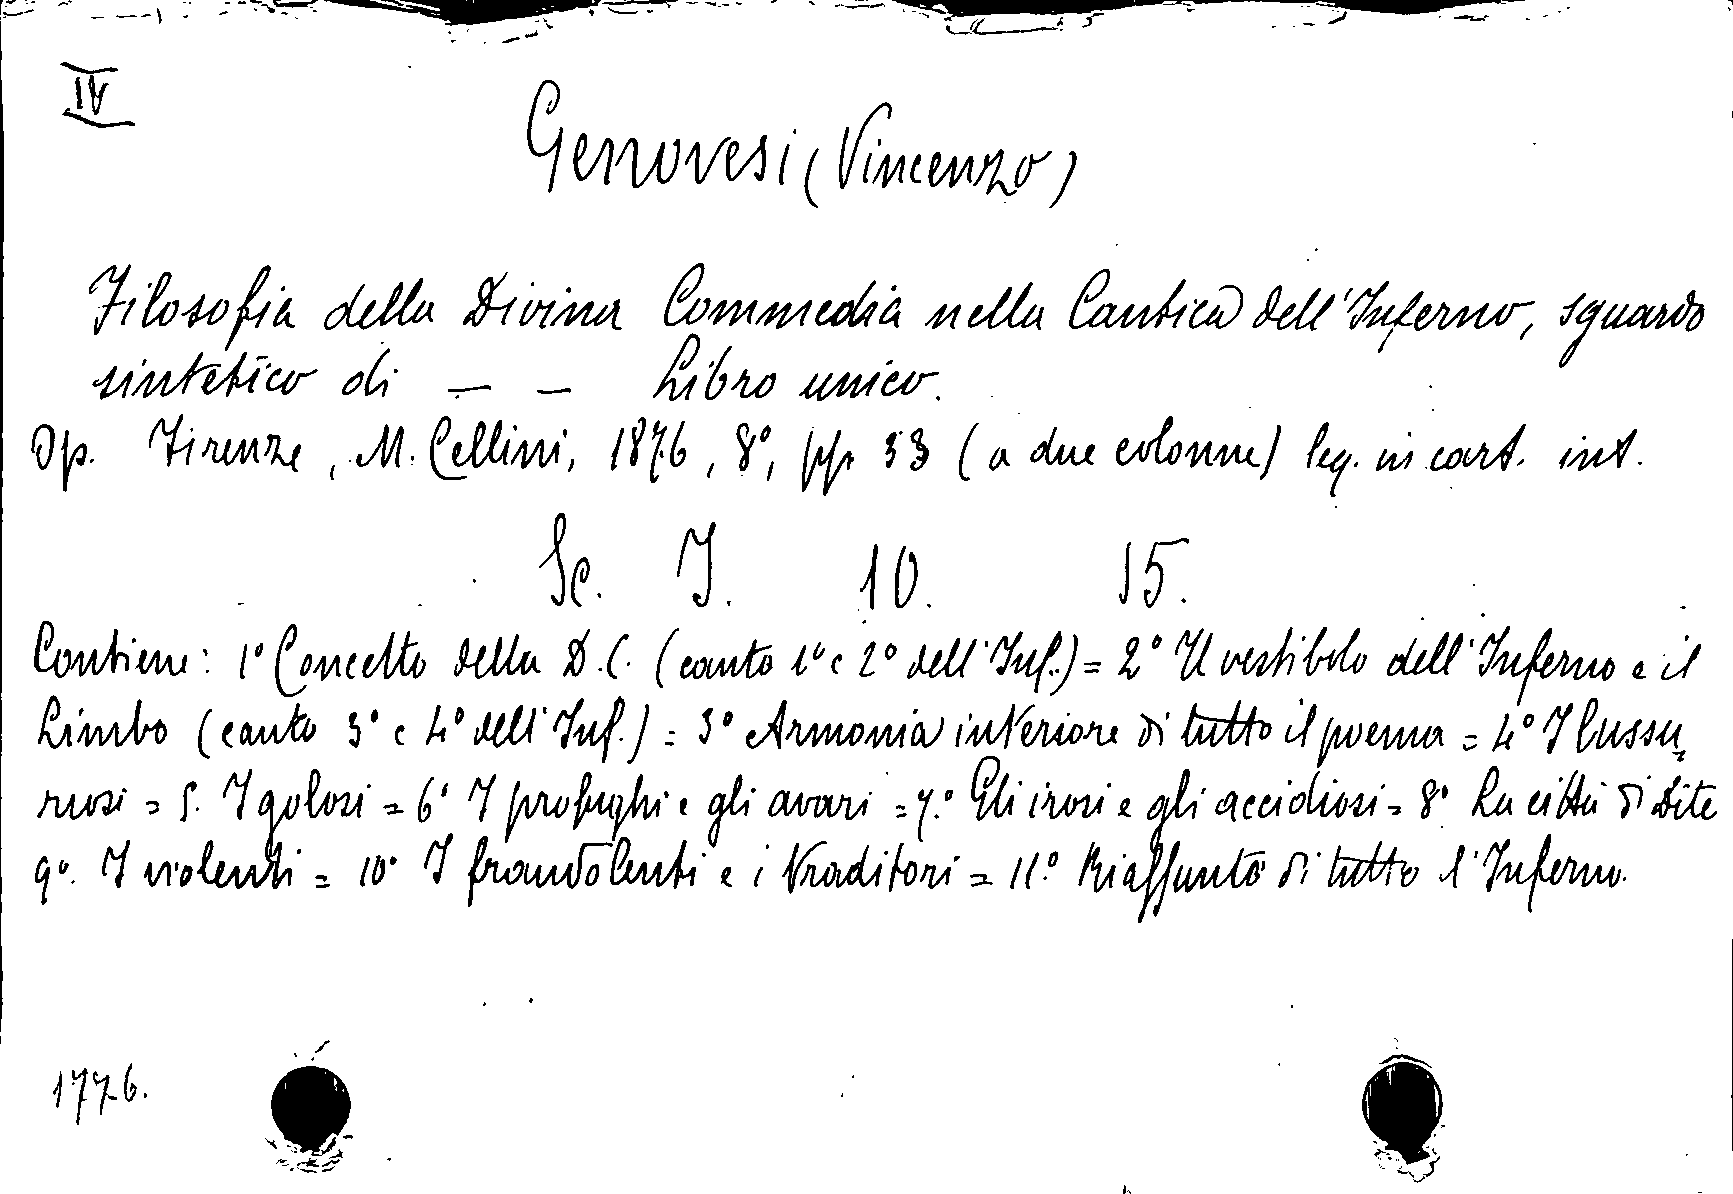 IV
Genovesi (Vincenzo)
Filosofia della Divina Commedia nella Cantica dell'Inferno, sguardo
sintetico di — — Libro unico.
Op. Firenze, M. Cellini, 1876, 8°, pp. 33 (a due colonne) leg. in cart. int.
Sc. I. 10. 15.
Contiene: 1° Concetto della D.C. (canto 1° e 2° dell'Inf.) = 2° Il vestibolo dell'Inferno e il
Limbo (canto 3° e 4° dell'Inf.) = 3° Armonia interiore di tutto il poema = 4° I lussu=
riosi = 5. I golosi = 6° I profughi e gli avari = 7.° Gli irosi e gli accidiosi = 8° La città di Dite
9°. I violenti = 10° I fraudolenti e i traditori = 11.° Riassunto di tutto l'Inferno.
1776.